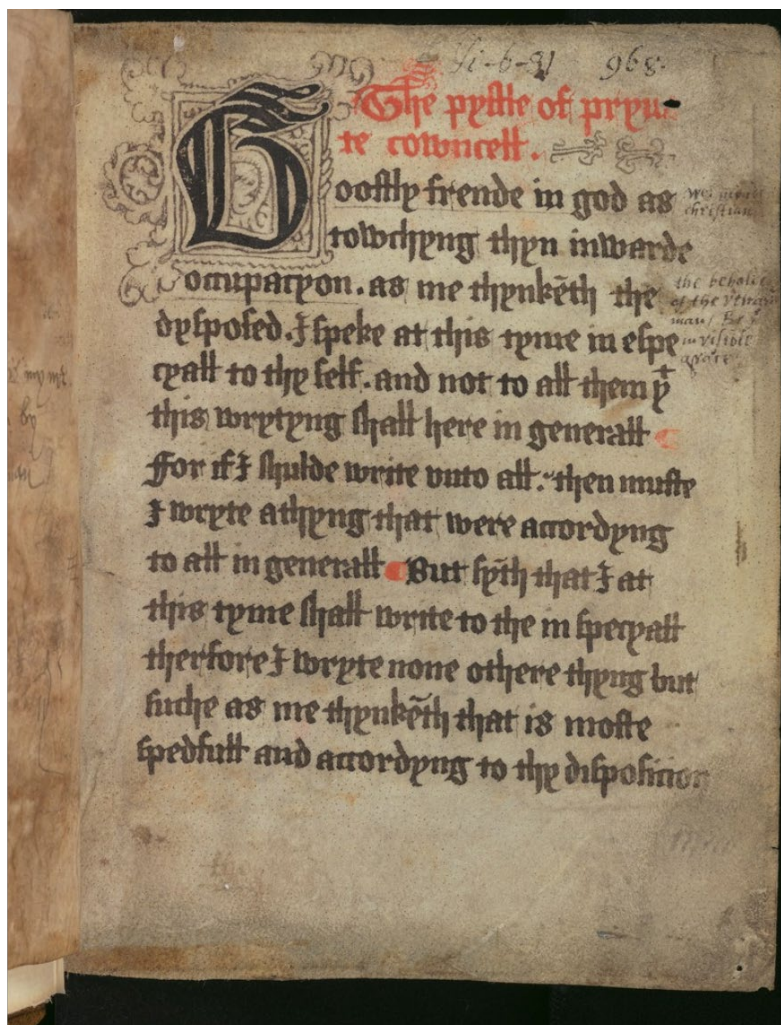 Ii-6-31 968.
The pystle of pryu
te cowncell.
Goostly frende in god as
towchyng thyn inwarde
occupacyon. as me thynkēth the
dysposed. I speke at this tyme in espe
cyall to thy self. and not to all them yͭ
this wrytyng shall here in generall
ffor if I shulde write vnto all. then muste
I wryte a thyng that were accordyng
to all in generall But syth that I at
this tyme shall write to the in specyall
therfore I wryte none othere thyng but
suche as me thynkēth that is moste
spedfull and accordyng to thy disposicion
christian
the behalfe
of the
man
invisible
by